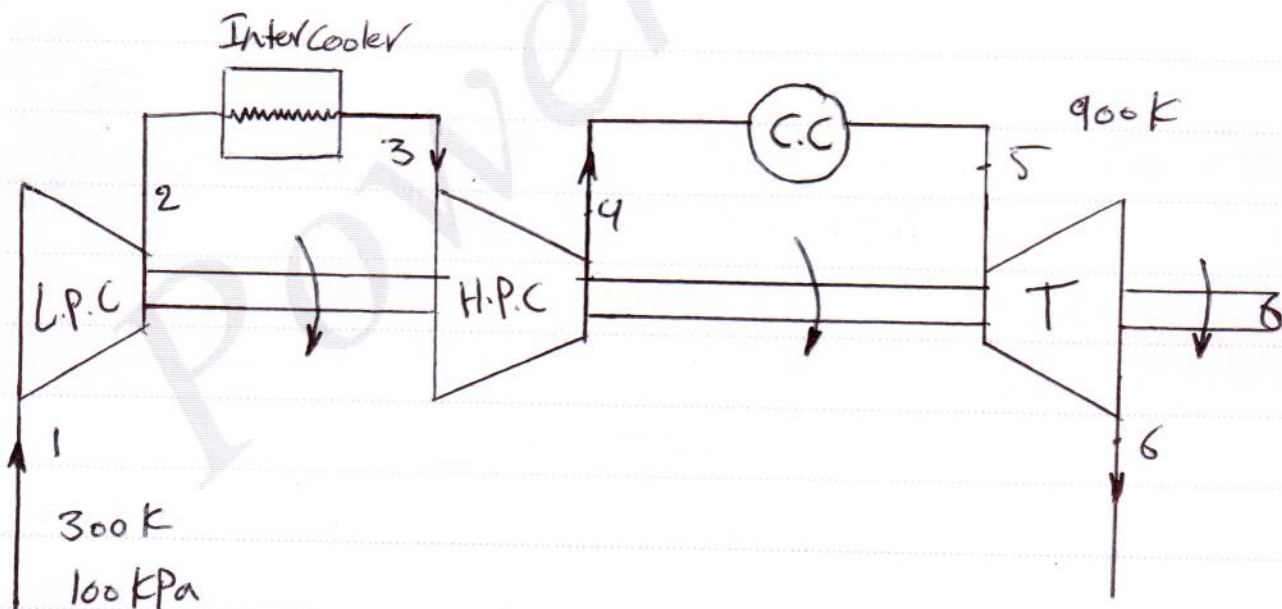 Intercooler
C.C
900 K
3
5
2
4
L.P.C
H.P.C
T
1
6
300 K
100 KPa
Power